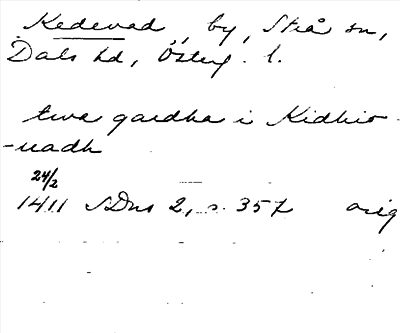 Kedevad, by, Strå sn,
Dals hd, Österg. l.
twa gardha i Kidhio-
-uadh
24/2
1411 SDns 2, s. 357 orig